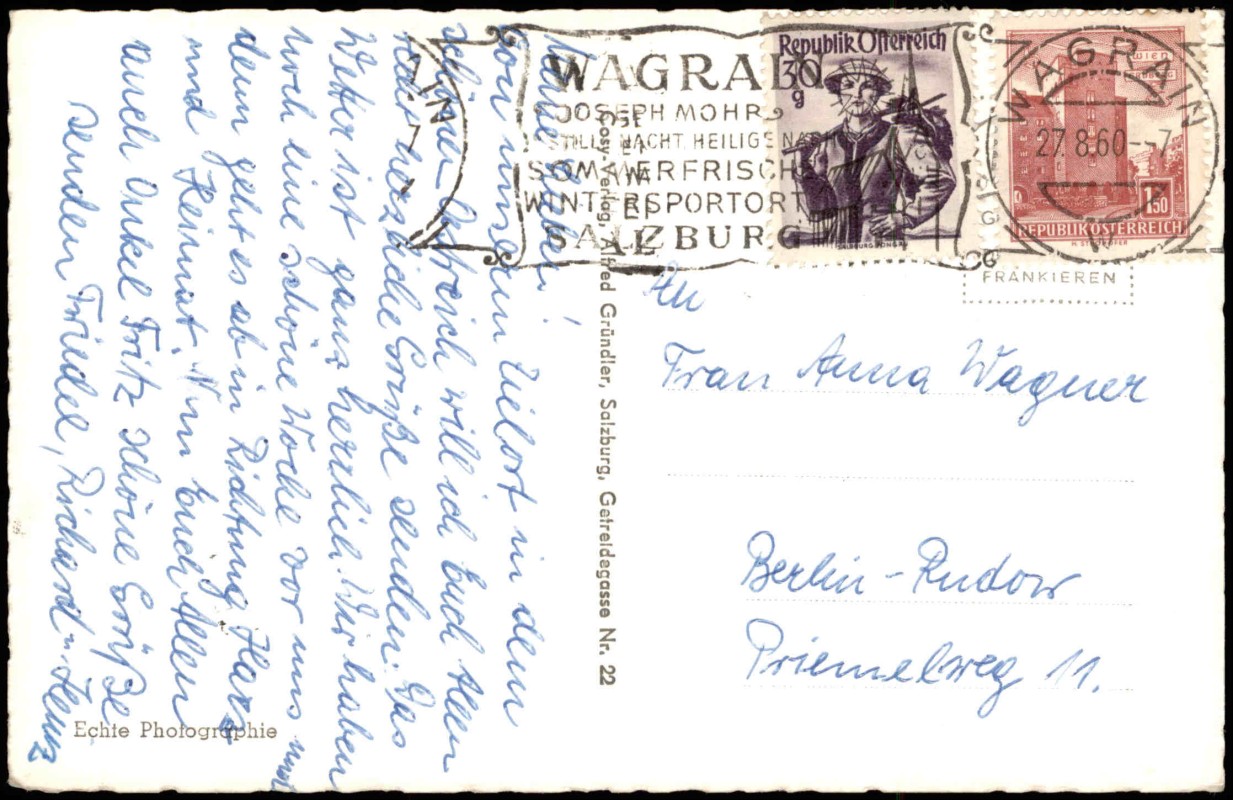 Meine Lieben!
Von unserm Zielort in dem
schönen Östreich will ich Euch Allen
recht herzliche Grüße senden. Das
Wetter ist ganz herrlich. Wir haben
noch eine schöne Woche vor uns und
dann geht es ab in Richtung Harz
und Heimat. Nun Euch Allen
auch Onkel Fritz schöne Grüße
senden Friedel, Richard u. Heinz
Echte Photographie
Cosy-Verlag, Alfred Gründler, Salzburg, Getreidegasse Nr. 22
WAGRAIN
JOSEPH MOHR
STILLE NACHT, HEILIGE NACHT
SOMMERFRISCHE
WINTERSPORTORT
SALZBURG
Republik Österreich
30
g
SALZBURG, PONGAU
WIEN
ERDBERG
1.50
REPUBLIK ÖSTERREICH
WAGRAIN
27.8.60--7
FRANKIEREN
An
Frau Anna Wagner
Berlin-Rudow
Priemelweg 11.